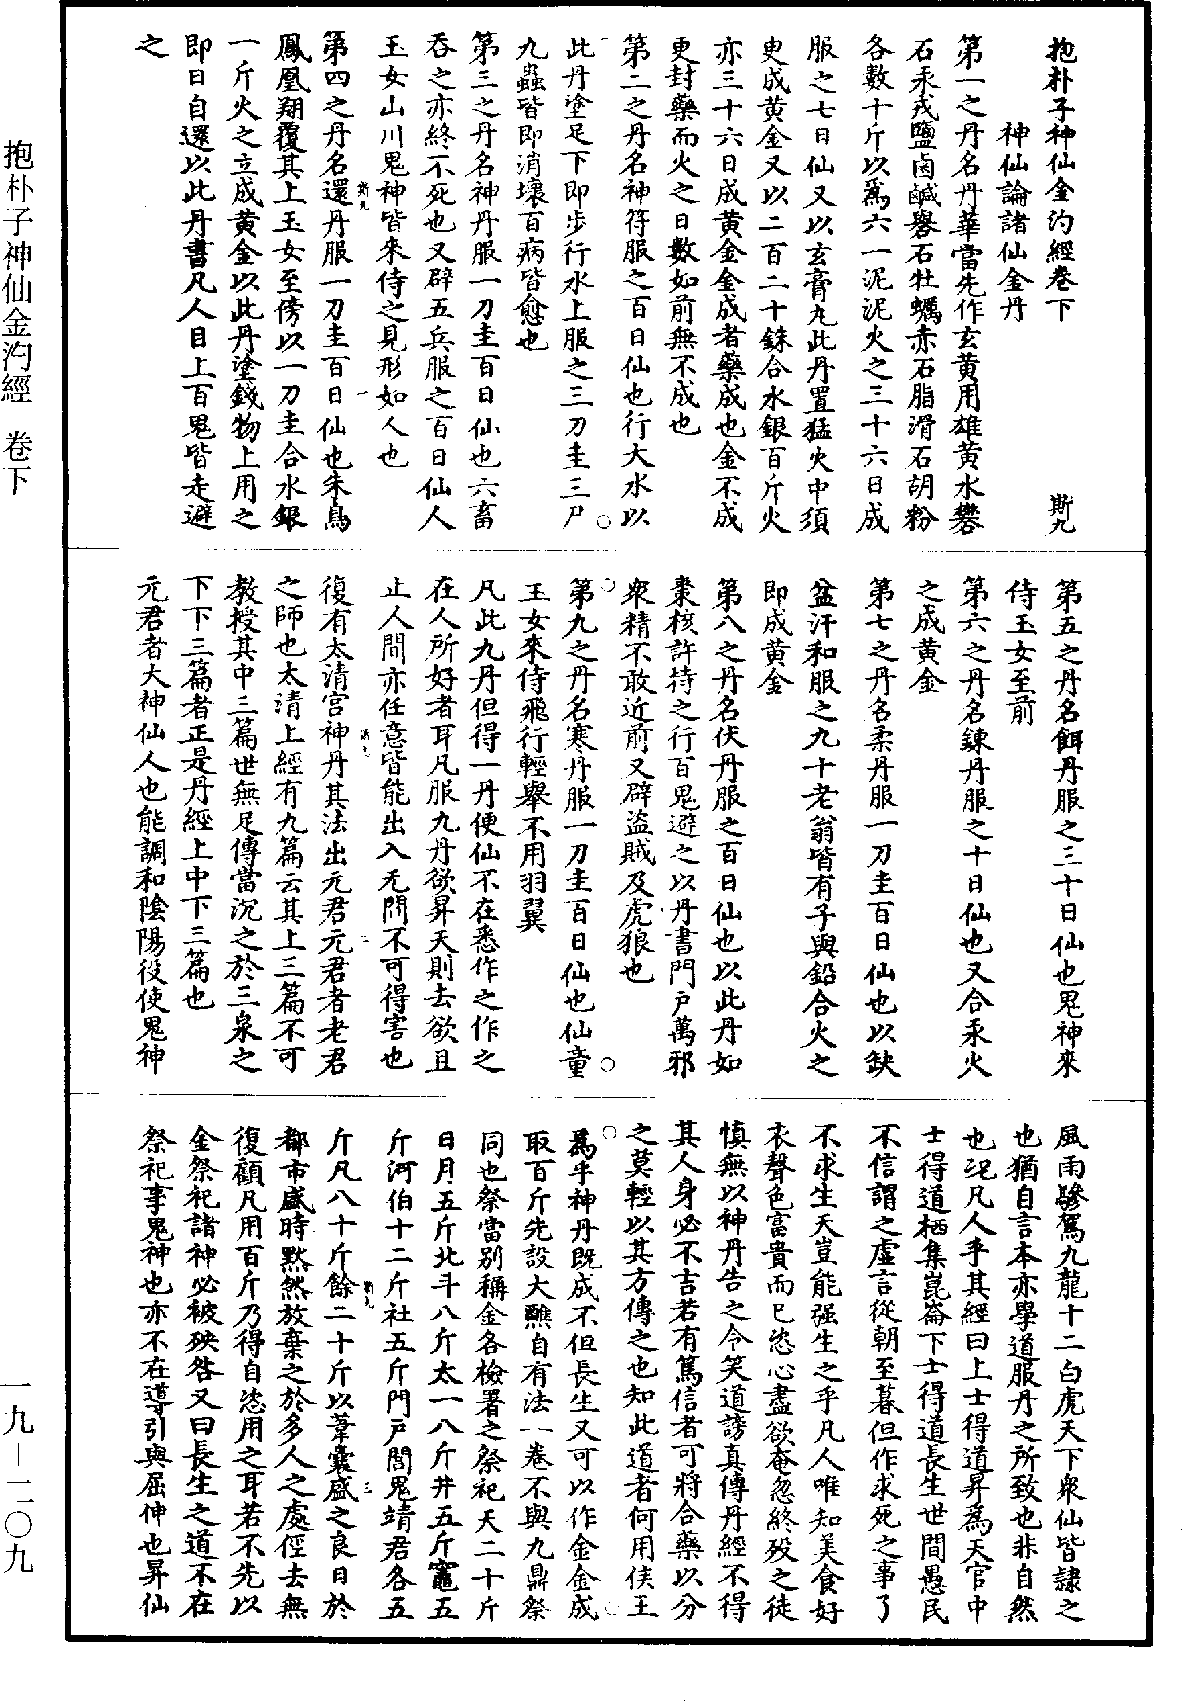 抱朴子神仙金汋經卷下　斯九
神仙論諸仙金丹
第一之丹名丹華當先作玄黃用雄黃水礬
石汞戎鹽鹵鹹礜石牡蠣赤石脂滑石胡粉
各數十斤以爲六一泥泥火之三十六日成
服之七日仙又以玄膏丸此丹置猛火中須
史成黃金又以二百二十銖合水銀百斤火
亦三十六日成黃金金成者藥成也金不成
更封藥而火之日數如前無不成也
第二之丹名神符服之百日仙也行大水以
此丹塗足下即步行水上服之三刀圭三尸
九蟲皆即消壞百病皆愈也
第三之丹名神丹服一刀圭百日仙也六畜
吞之亦終不死也又辟五兵服之百日仙人
玉女山川鬼神皆來侍之見形如人也
第四之丹名還丹服一刀圭百日仙也朱鳥
鳳凰翔覆其上玉女至傍以一刀圭合水銀
一斤火之立成黃金以此丹塗錢物上用之
即日自還以此丹書凡人目上百鬼皆走避
之
第五之丹名餌丹服之三十日仙也鬼神來
侍玉女至前
第六之丹名鍊丹服之十日仙也又合汞火
之成黃金
第七之丹名柔丹服一刀圭百日仙也以缺
盆汗和服之九十老翁皆有子與鉛合火之
即成黃金
第八之丹名伏丹服之百日仙也以此丹如
棗核許持之行百鬼避之以丹書門戶萬邪
衆精不敢近前又辟盜賊及虎狼也
第九之丹名寒丹服一刀圭百日仙也仙童
玉女來侍飛行輕舉不用羽翼
凡此九丹但得一丹便仙不在悉作之作之
在人所好者耳凡服九丹欲昇天則去欲且
止人間亦任意皆能出入无間不可得害也
復有太清宮神丹其法出元君元君者老君
之師也太清上經有九篇云其上三篇不可
教授其中三篇世無足傳當沉之於三泉之
下下三篇者正是丹經上中下三篇也
元君者大神仙人也能調和陰陽役使鬼神
風雨驂駕九龍十二白虎天下衆仙皆隸之
也猶自言本亦學道服丹之所致也非自然
也况凡人乎其經曰上士得道昇爲天官中
士得道栖集崑崙下士得道長生世間愚民
不信謂之虛言從朝至暮但作求死之事了
不求生天豈能强生之乎凡人唯知美食好
衣聲色富貴而已恣心盡欲奄忽終歿之徒
慎無以神丹告之令笑道謗真傳丹經不得
其人身必不吉若有篤信者可將合藥以分
之莫輕以其方傳之也知此道者何用侯王
爲乎神丹既成不但長生又可以作金金成
取百斤先設大醮自有法一卷不與九鼎祭
同也祭當別稱金各檢署之祭祀天二十斤
日月五斤北斗八斤太一八斤井五斤竈五
斤河伯十二斤社五斤門戶閭鬼靖君各五
斤凡八十斤餘二十斤以葦囊盛之良日於
都市盛時默然放棄之於多人之處徑去無
復顧凡用百斤乃得自恣用之耳若不先以
金祭祀諸神必被殃咎又曰長生之道不在
祭祀事鬼神也亦不在導引與屈伸也昇仙
抱朴子神仙金汋經　卷下
一九—二〇九